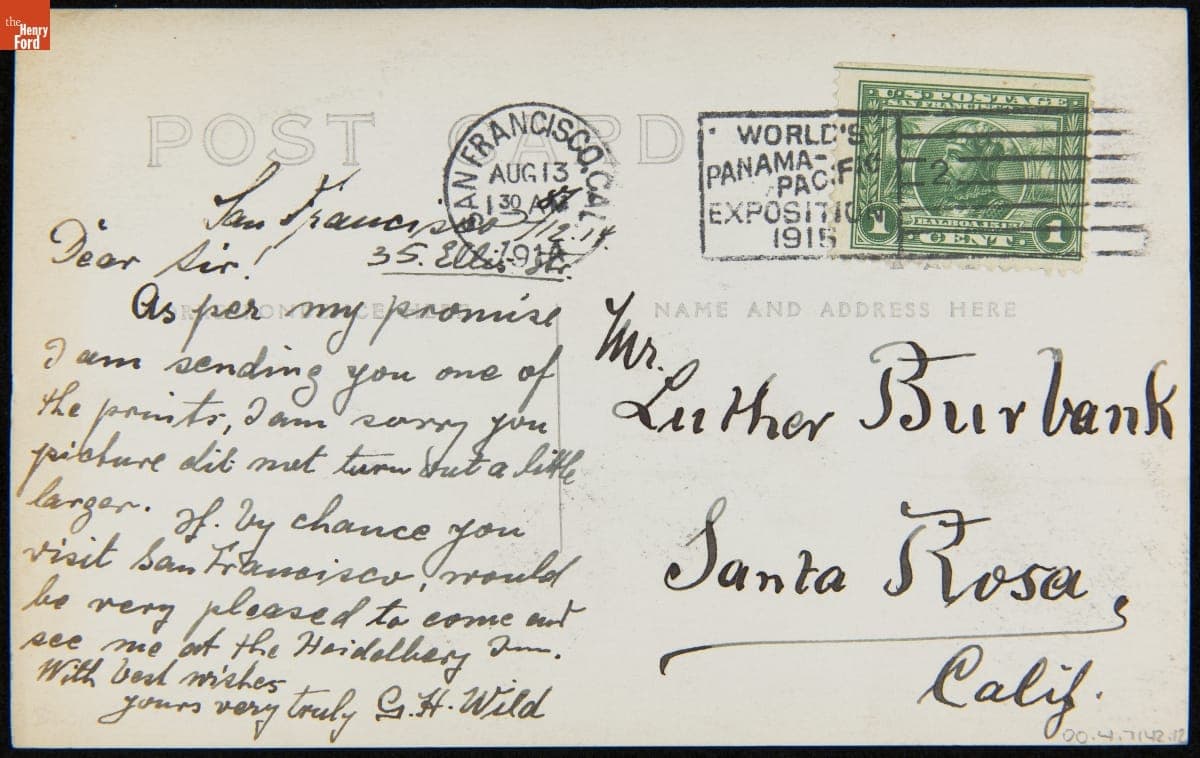 the
Henry
Ford
POST CARD
SAN FRANCISCO, CAL.
AUG 13
1 30 AM
WORLD'S
PANAMA-
PACIFIC
EXPOSITION
1915
2
U.S. POSTAGE
SAN FRANCISCO
BALBOA
1 CENT 1
San Francisco 8/12.14.
35. Ellis Str.
Dear Sir!
CORRESPONDENCE HERE
As per my promise
I am sending you one of
the prints, I am sorry you
picture dit not turn out a little
larger. If by chance you
visit San Francisco, would
be very pleased to come and
see me at the Heidelberg Inn.
With best wishes
yours very truly G.H. Wild
NAME AND ADDRESS HERE
Mr.
Luther Burbank
Santa Rosa,
Calif.
00.4.7142.12